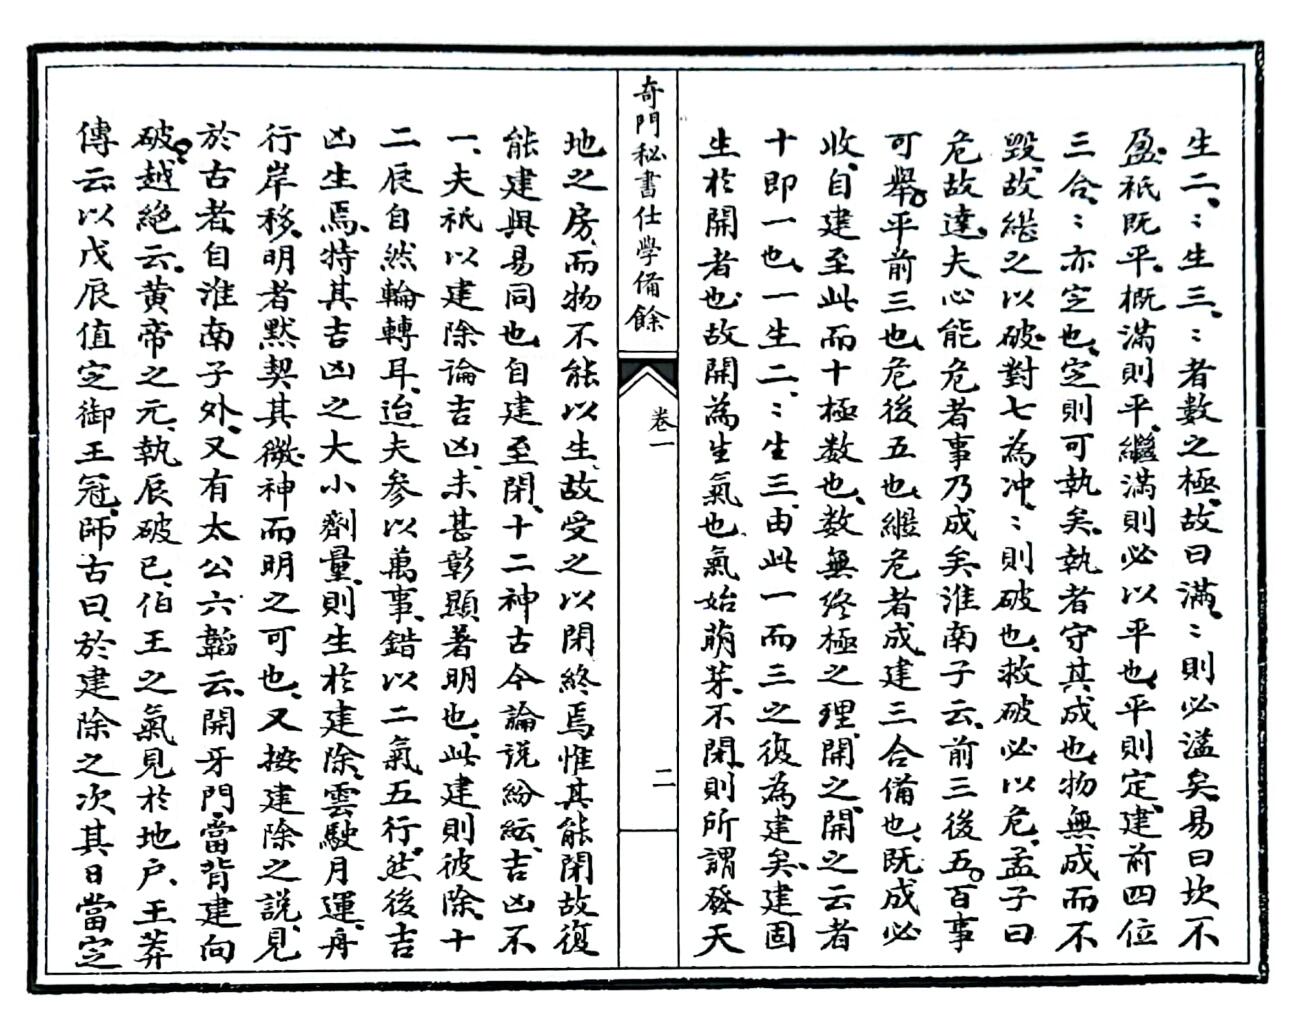 生二、〻生三、〻者數之極、故曰滿、〻則必溢矣、易曰坎不
盈、祇既平、概滿則平、繼滿則必以平也、平則定、建前四位
三合、〻亦定也、定則可執矣、執者守其成也、物無成而不
毀、故繼之以破、對七為冲、〻則破也、救破必以危、孟子曰
危故達、夫心能危者事乃成矣淮南子云、前三後五。百事
可舉。平前三也、危後五也、繼危者成、建三合備也、既成必
收、自建至此而十極數也、數無終極之理、開之、開之云者
十即一也、一生二、〻生三、由此一而三之復為建矣、建固
生於開者也、故開為生氣也、氣始萌芽、不閉則所謂發天
奇門秘書仕學備餘
卷一
二
地之房、而物不能以生、故受之以閉終焉惟其能閉故復
能建與易同也、自建至閉、十二神古今論説紛紜、吉凶不
一、夫祇以建除論吉凶、未甚彰顯著明也、此建則彼除、十
二辰自然輪轉耳、迨夫參以萬事、錯以二氣五行、然後吉
凶生焉、特其吉凶之大小劑量、則生於建除、雲駛月運、舟
行岸移、明者默契其微、神而明之可也、又按建除之説、見
於古者、自淮南子外、又有太公六韜云、開牙門、當背建向
破。越絶云、黃帝之元、執辰破巳、伯王之氣見於地户、王莽
傳云、以戊辰值定御王冠、師古曰、於建除之次其日當定